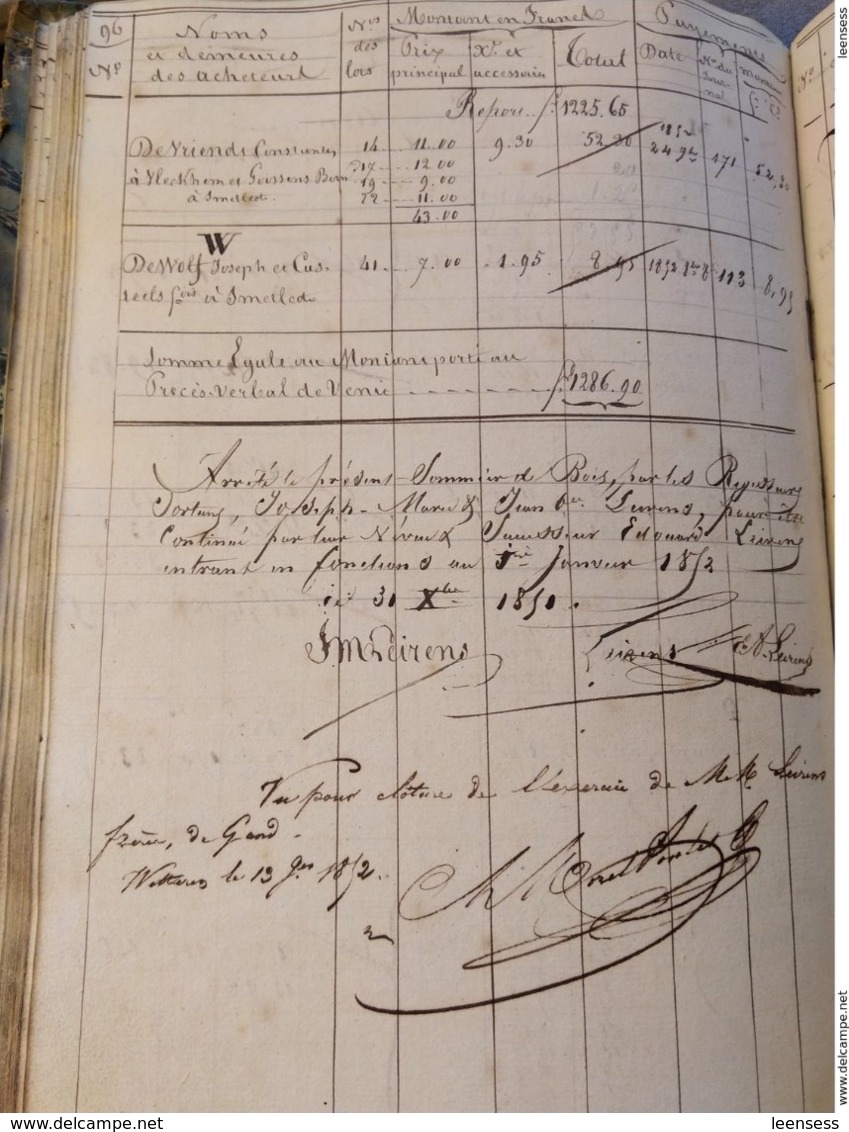 96
Nº
Noms
et demeures
des acheteurs
Nºs
des
lots
Montant en Francs
Prix
principal
Xe et
accessoires
Total
Payement
Date
Nº du
Jour-
nal
montant
f. c.
Report f 1225.65
De Vriendt Constantin 14 11.00 9.30 52.30 1852 24 9bre 171 52,30
à Vleckhem et Goissens Bern 17 12.00
19 9.00
à Smetlede 22 11.00
43.00
W
De Wolf Joseph et Cas- 41 7.00 1.95 8.95 1852 8bre 113 8,95
teels fois à Smetlede
Somme Egale au Montant porté au
Procès-verbal de Vente f 1286.90
Arrêté le présent Sommier de Bois, par les Régisseurs
Joseph-Marie & Jean Leirens, pour être
Continué par leur Neveu & Successeur Edouard Leirens
entrant en fonctions au 1er Janvier 1852
ce 31 Xbre 1851.
JM Leirens Leirens EA Leirens
Vu pour clôture de l'exercice de MM Leirens
frères, de Gand.
Wetteren le 13 9bre 1852.
leensess
www.delcampe.net
www.delcampe.net
leensess